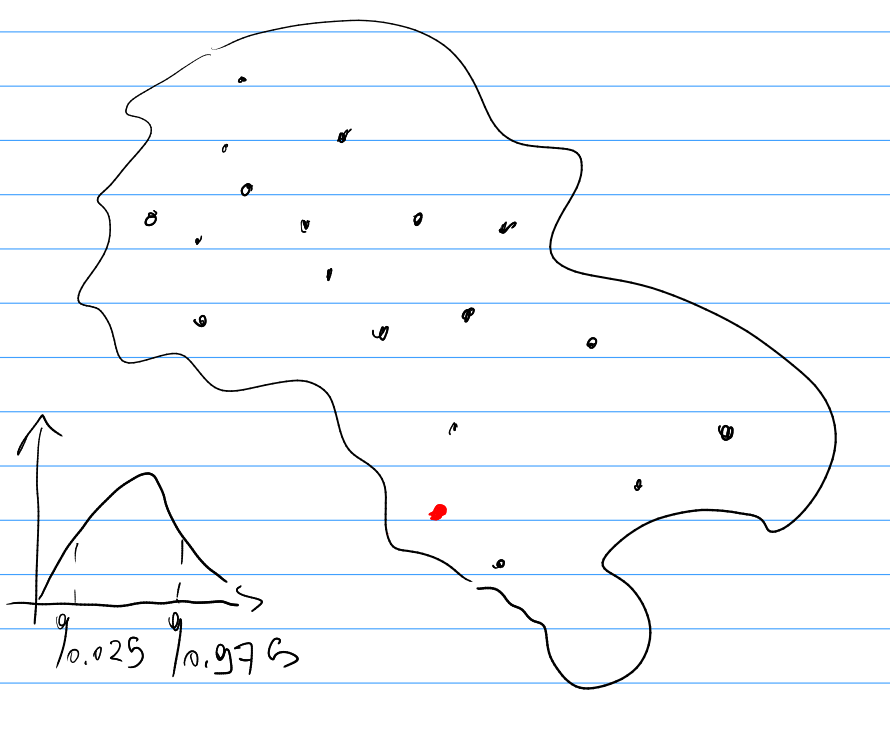 q0.025 q0.975